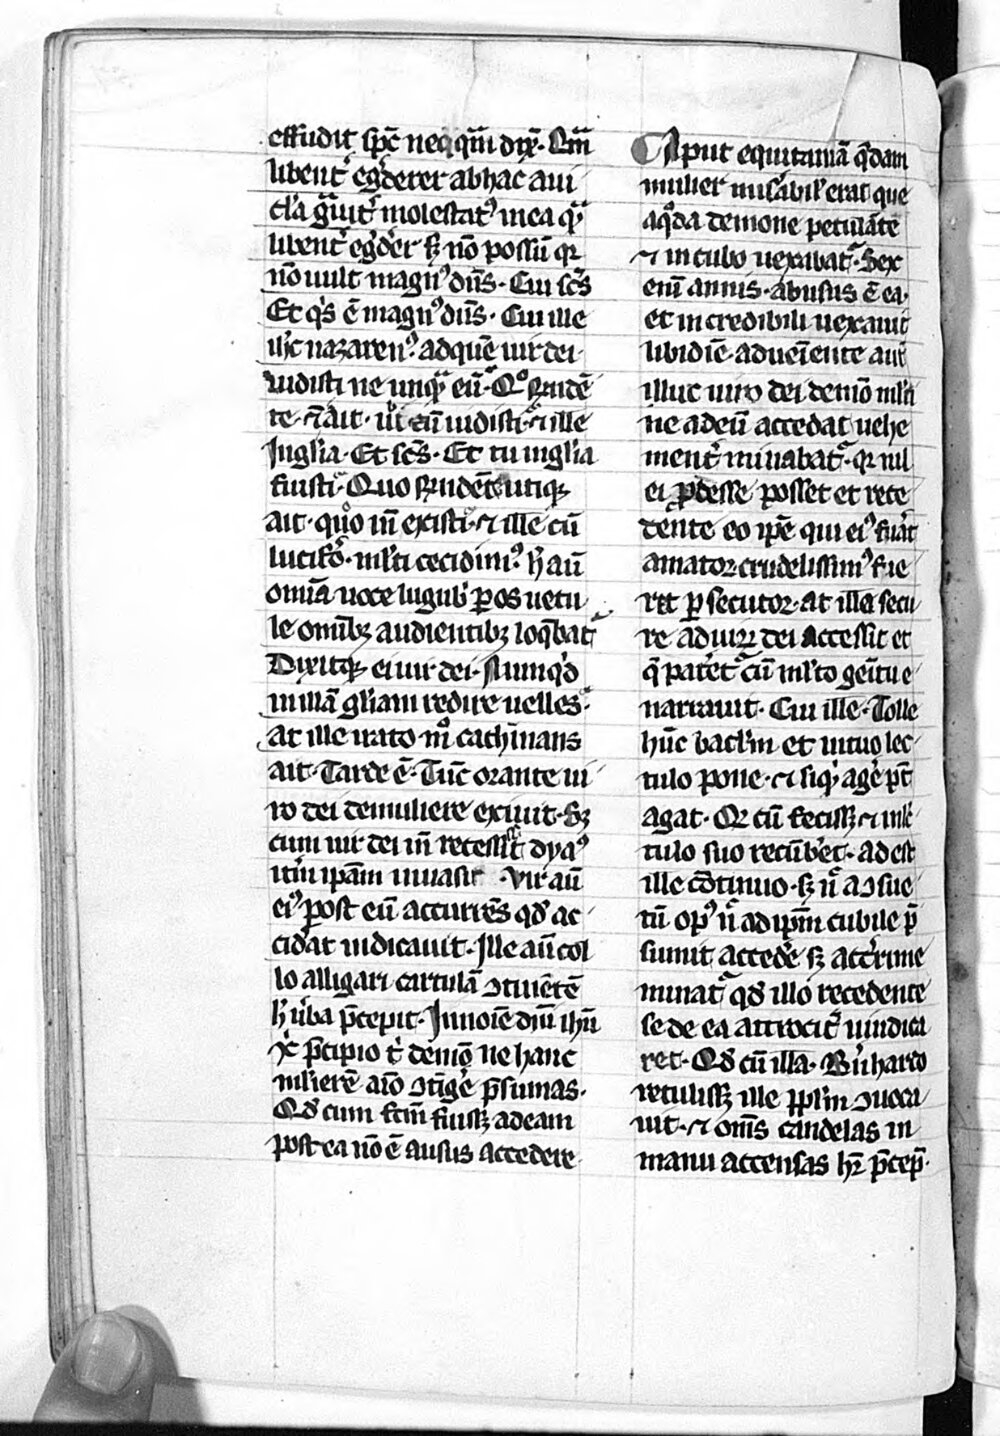 effudit sp̄c neqq̄m dix̄. Q̄m
libent᷒ eg᷒derer ab hac aui
cl̄a g̈uit᷒ molestatꝰ in ea qͣ
libent᷒ eg᷒der᷒ sꝫ nō possū qꝛ
nō uult magnꝰ dn̄s. Cui sc̄s
Et q's ē magnꝰ dn̄s. Cui ille
ih̄c nazarenꝰ. ad quē uir dei.
uidisti ne unqͣ eū. Qͦ r̄ndē
te. ⁊ āit. ubi eū uidisti. ⁊ ille
In gl'ia. Et sc̄s. Et tu in gl'ia
fuisti. Quo r̄ndēte utiqꝫ
ait. quͦo in̄ existi. ⁊ ille cū
lucif'o. ml'ti cecidimꝰ. h̄ aū
omīa uoce lugub' ꝑ os uetu
le omībꝫ audientibꝫ loq̄bat᷒
Dixitqꝫ ei uir dei. Nunq'd
in illā gl'iam redire uelles.
At ille irato mͦ cachīnans
ait. Tarde ē. Tūc orante ui
ro dei de muliere exiuit. Sꝫ
cum uir dei in̄ recessiss̄t dyaꝰ
it'm ipam inuasit. Vir aū
eiꝰ post eū accurrēs qd̄ ac
cid'at indicauit. Ille aū col
lo alligari cartulā ↄtinētē
h̄ u'ba p̄cepit. In noīe dn̄i ih̄u
x̄c p̄cipio t' demō ne hanc
ml'ierē amͦ ↄting'e p̄sumas.
Qd̄ cum fcm̄ fuissꝫ ad eam
post ea nō ē ausus accedere
Aput equitaniā q̄dam
mulier mis'abil' erat que
a qͦda demone petulāte
⁊ incubo uexabat᷒. Sex
enī annis. abusus ē ea.
et incredibili uexauit
libidīe. adueīente aūt
illuc uiro dei demō ml'i
ne ad eū accedat uehe
ment' minabat᷒. qꝛ nil
ei ꝓdesse posset et rece
dēte eo ip̄e qui eiꝰ fu'at
amator crudelissimꝰ fie
ret ꝑsecutor. at illa secu
re ad uirꝫ dei accessit et
q̄ patet᷒ cū ml'to gem̄itu e
narrauit. Cui ille. Tolle
hūc bacl'm et in tuo lec
tulo pone. ⁊ siq' ag'e pt̄
agat. Qꝛ cū fecissꝫ ⁊ in lc̄
tulo suo recūb'et. adest
ille ꝯtinuo. sꝫ n̄ aↄsue
tū opꝰ n̄ ad ip̄m cubile p̄
sumit acced'e sꝫ act'rime
minat᷒ qd̄ illo recedente
se de ea atrocit᷒ uindica
ret. Qd̄ cū illa. B'nhardo
retulissꝫ ille ppl'm ↄuoca
uit. ⁊ om̄s candelas in
manu accensas h'e p̄cep̄.